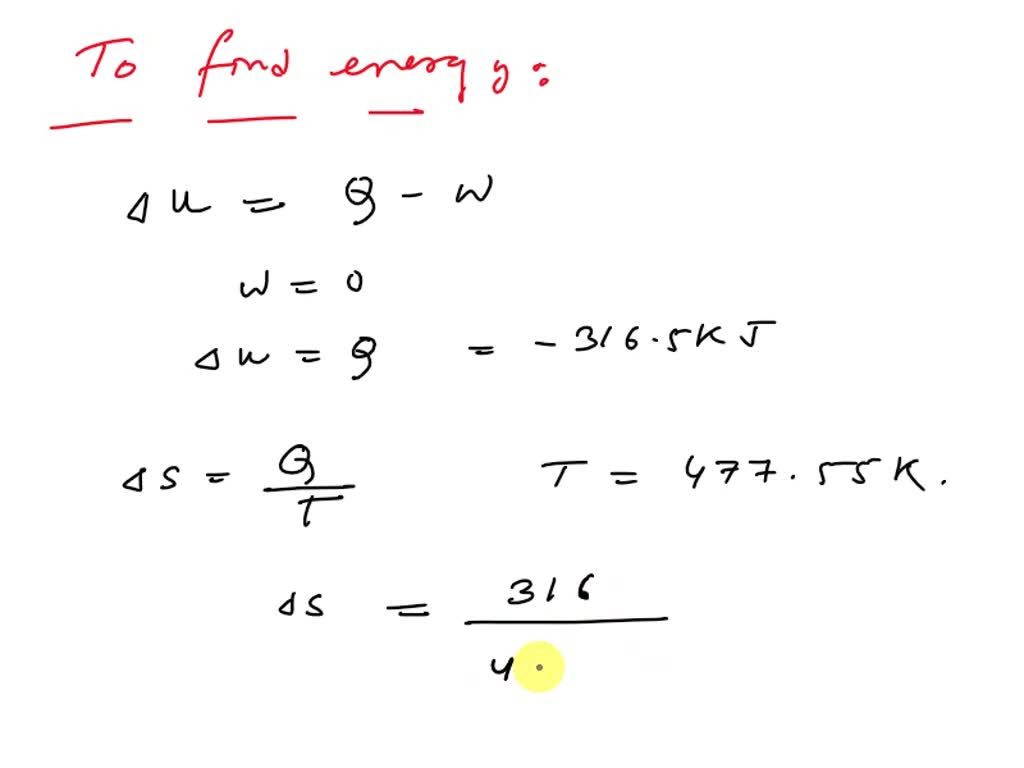 To find energy:
Δu = Q - W
W = 0
Δu = Q = - 316.5KJ
ΔS = Q/T T = 477.55K.
ΔS = 316/4